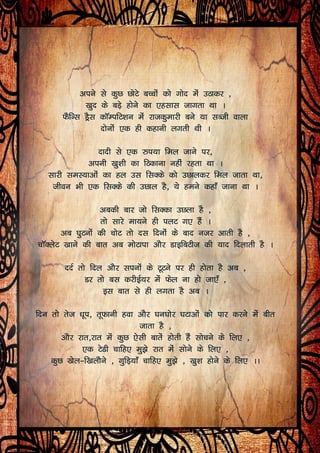 अपने से कुछ छोटे बच्चों को गोद में उठाकर ,
खुद के बड़े होने का एहसास जागता था ।
फैन्सि ड्रैस कॉम्पटिशन में राजकुमारी बने या सब्जी वाला
दोनों एक ही कहानी लगती थी ।
दादी से एक रुपया मिल जाने पर,
अपनी खुशी का ठिकाना नहीं रहता था ।
सारी समस्याओं का हल उस सिक्के को उछालकर मिल जाता था,
जीवन भी एक सिक्के की उछाल है, ये हमने कहाँ जाना था ।
अबकी बार जो सिक्का उछला है ,
तो सारे मायने ही पलट गए हैं ।
अब घुटनों की चोट तो दस दिनों के बाद नजर आती है ,
चॉक्लेट खाने की बात अब मोटापा और डाइबिटीज की याद दिलाती है ।
दर्द तो दिल और सपनों के टूटने पर ही होता है अब ,
डर तो बस करीईयर में फेल ना हो जाएँ ,
इस बात से ही लगता है अब ।
दिन तो तेज धूप, तूफानी हवा और घनघोर घटाओं को पार करने में बीत
जाता है ,
और रात,रात में कुछ ऐसी बातें होती हैं सोचने के लिए ,
एक टेडी चाहिए मुझे रात में सोने के लिए ,
कुछ खेल-खिलौने , गुड़ियाँ चाहिए मुझे , खुश होने के लिए ।।